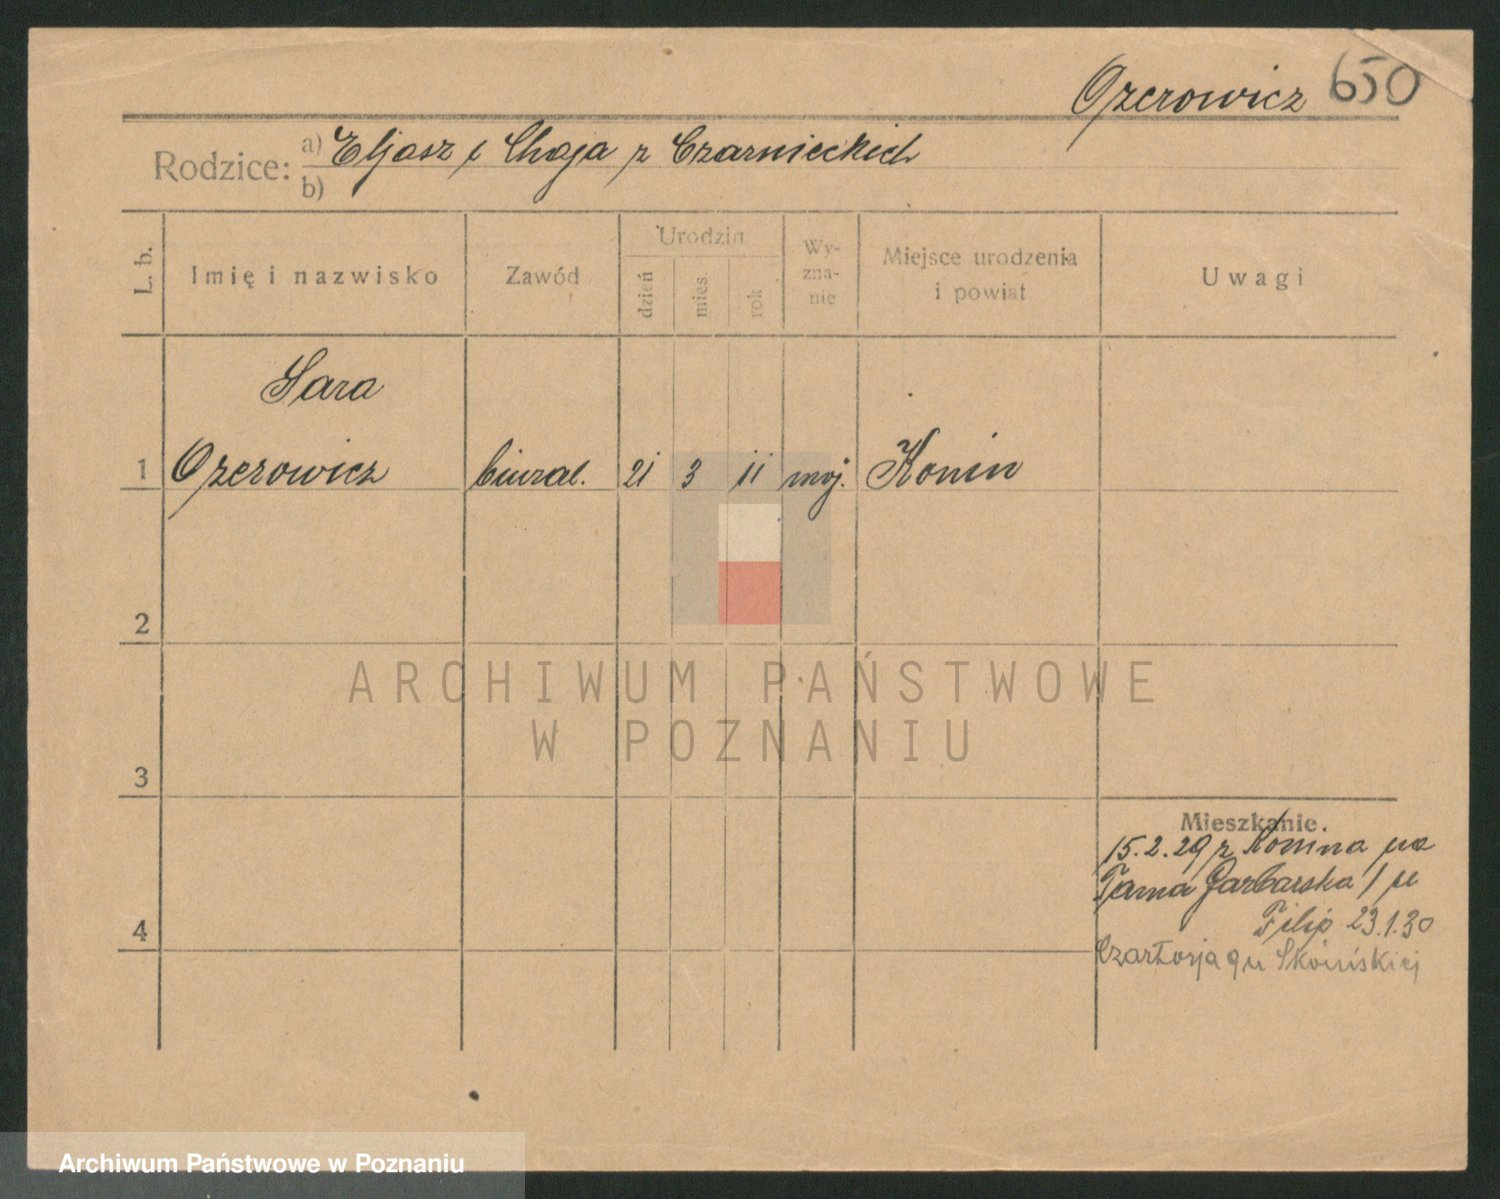 Ozerowicz 650
Rodzice: a) Eljasz i Chaja z Czarnieckich
b)
L. b.
Imię i nazwisko
Zawód
Urodzin
dzień
mies.
rok
Wy-
zna-
nie
Miejsce urodzenia
i powiat
Uwagi
Sara
1 Ozerowicz biural. 21 3 11 mojż. Konin
2
ARCHIWUM PAŃSTWOWE
W POZNANIU
3
Mieszkanie.
15.2.29 z Konina na
Tama Garbarska 1 u
Filip 23.1.30
4
Czartorja 9 u Skóińskiej
Archiwum Państwowe w Poznaniu